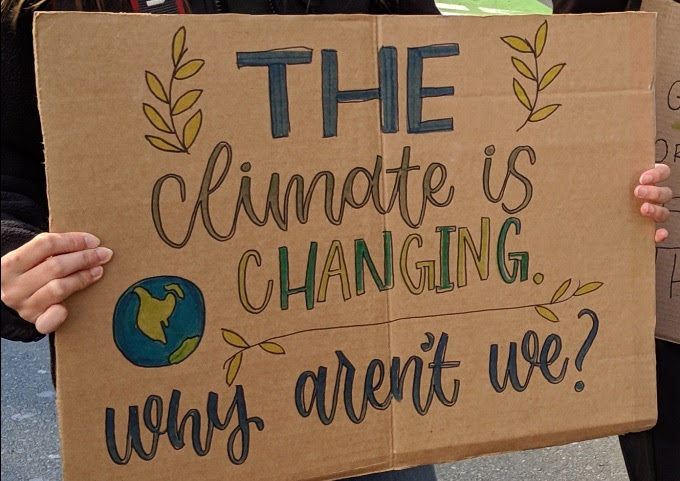 THE
climate is
CHANGING.
why aren't we?